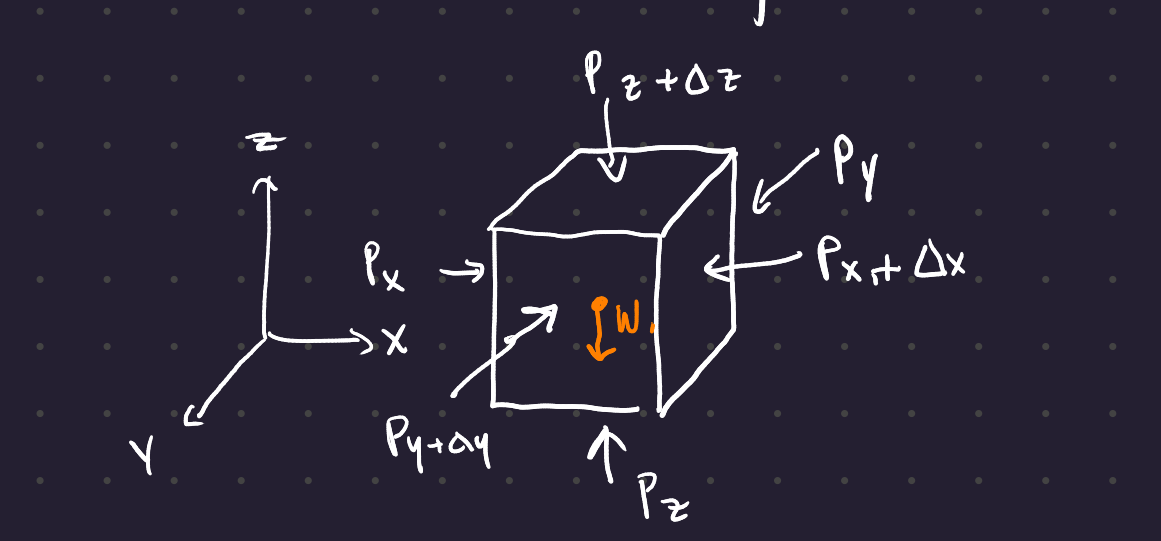 P z+Δz
z
Py
Px
Px+Δx
W.
x
Py+Δy
y
Pz